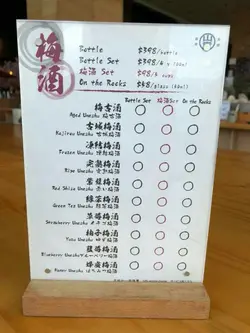 梅酒
Bottle $398/bottle
Bottle Set $398/4 x
梅酒 Set $98/3 cups
On the Rocks $48/glass (60ml)
Bottle Set 梅酒Set On the Rocks
梅古酒
Aged Umeshu 梅古酒
古城梅酒
Kojirou Umeshu 古城梅酒
凍結梅酒
Frozen Umeshu 凍結梅酒
Rice Umeshu
紫蘇梅酒
Red Shiso Umeshu 赤い梅酒
綠茶梅酒
Green Tea Umeshu 緑茶梅酒
草莓梅酒
Strawberry Umeshu 梅酒
柚子梅酒
Yuzu Umeshu ゆず梅酒
藍莓梅酒
Blueberry Umeshu ブルーベリー梅酒
蜂蜜梅酒
Honey Umeshu はちみつ梅酒